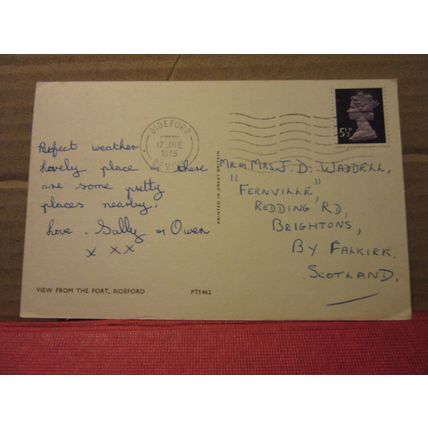 BIDEFORD
12 JNE
1975
DEVON
5½P
Perfect weather
lovely place & there
are some pretty
places nearby.
Love. Sally & Owen
x x x
PRINTED IN GREAT BRITAIN
Mr & Mrs J. D. WADDELL,
"FERNVILLE,"
REDDING RD,
BRIGHTONS,
BY FALKIRK.
SCOTLAND.
VIEW FROM THE FORT, BIDEFORD
PT1462